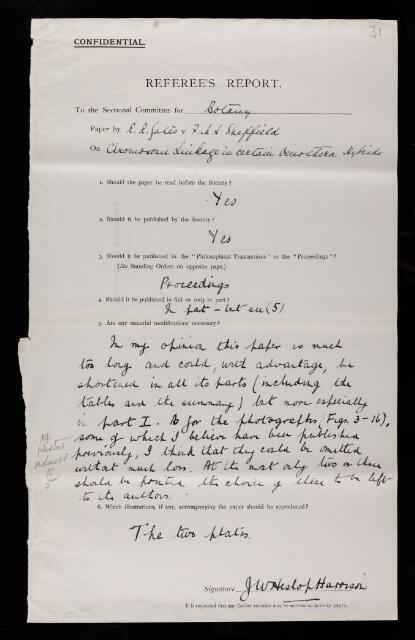 31
CONFIDENTIAL.
REFEREE'S REPORT.
To the Sectional Committee for Botany
Paper by R. R. Gates & F. M. L. Sheffield
On Chromosome Linkage in certain Oenothera Hybrids.
1. Should the paper be read before the Society?
Yes
2. Should it be published by the Society?
Yes
3. Should it be published in the "Philosophical Transactions" or the "Proceedings"?
(See Standing Orders on opposite page.)
Proceedings
4. Should it be published in full or only in part?
In part - but see (5)
5. Are any material modifications necessary?
In my opinion this paper is much
too long and could, with advantage, be
shortened in all its parts (including the
tables and the summary) but more especially
in part I. As for the photographs (Figs. 3-16),
some of which I believe have been published
previously, I think that they could be omitted
without much loss. At the most only two or three
should be printed the choice of these to be left
to the authors.
14
photos
reduced
to
5
6. Which illustrations, if any, accompanying the paper should be reproduced?
The two plates.
Signature J W Heslop Harrison
It is requested that any further remarks may be written on foolscap paper.